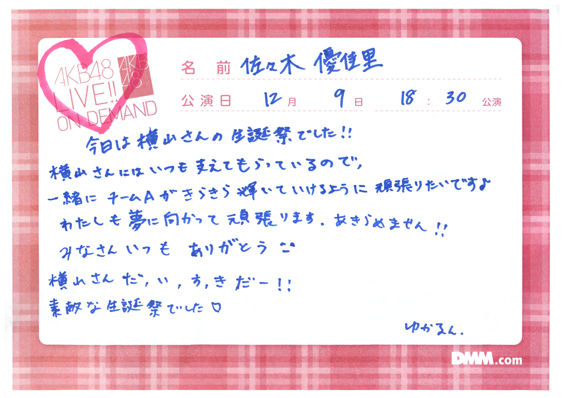 AKB48
LIVE!!
ON DEMAND
AKB
48
名前 佐々木 優佳里
公演日 12月 9日 18:30公演
今日は横山さんの生誕祭でした!!
横山さんにはいつも支えてもらっているので、
一緒にチームAがきらきら輝いていけるように頑張りたいですよ
わたしも夢に向かって頑張ります.あきらめません!!
みなさんいつも ありがとう
横山さん だ,い,す,きだー!!
素敵な生誕祭でした♡
ゆかるん.
DMM.com